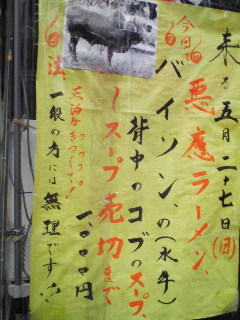 来る五月二十七日(日)
今回で⑥
悪魔ラーメン、
バイソン、の(水牛)
背中のコブのスープ、
ースープ売切まで
一、〇〇〇円
正油が
きついです!
注
一般の方には無理です